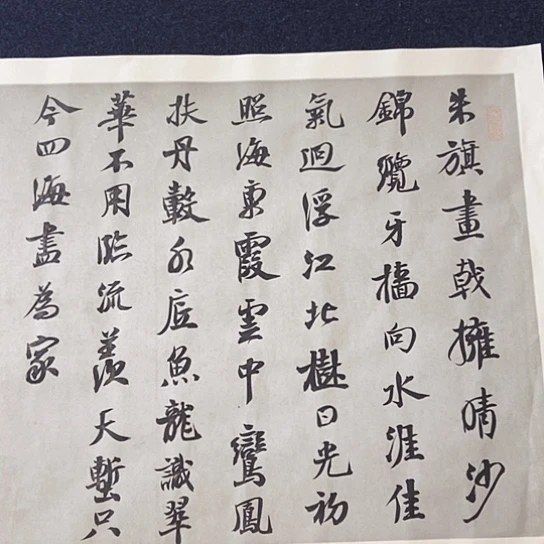 朱旗畫戟擁晴沙
錦纜牙檣向水涯佳
氣迴浮江北樹日光初
照海東霞雲中鸞鳳
扶丹轂水底魚龍識翠
華不用臨流羨天塹只
今四海盡為家